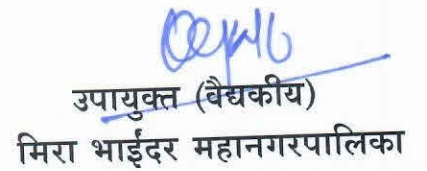 उपायुक्त (वैद्यकीय)
मिरा भाईंदर महानगरपालिका